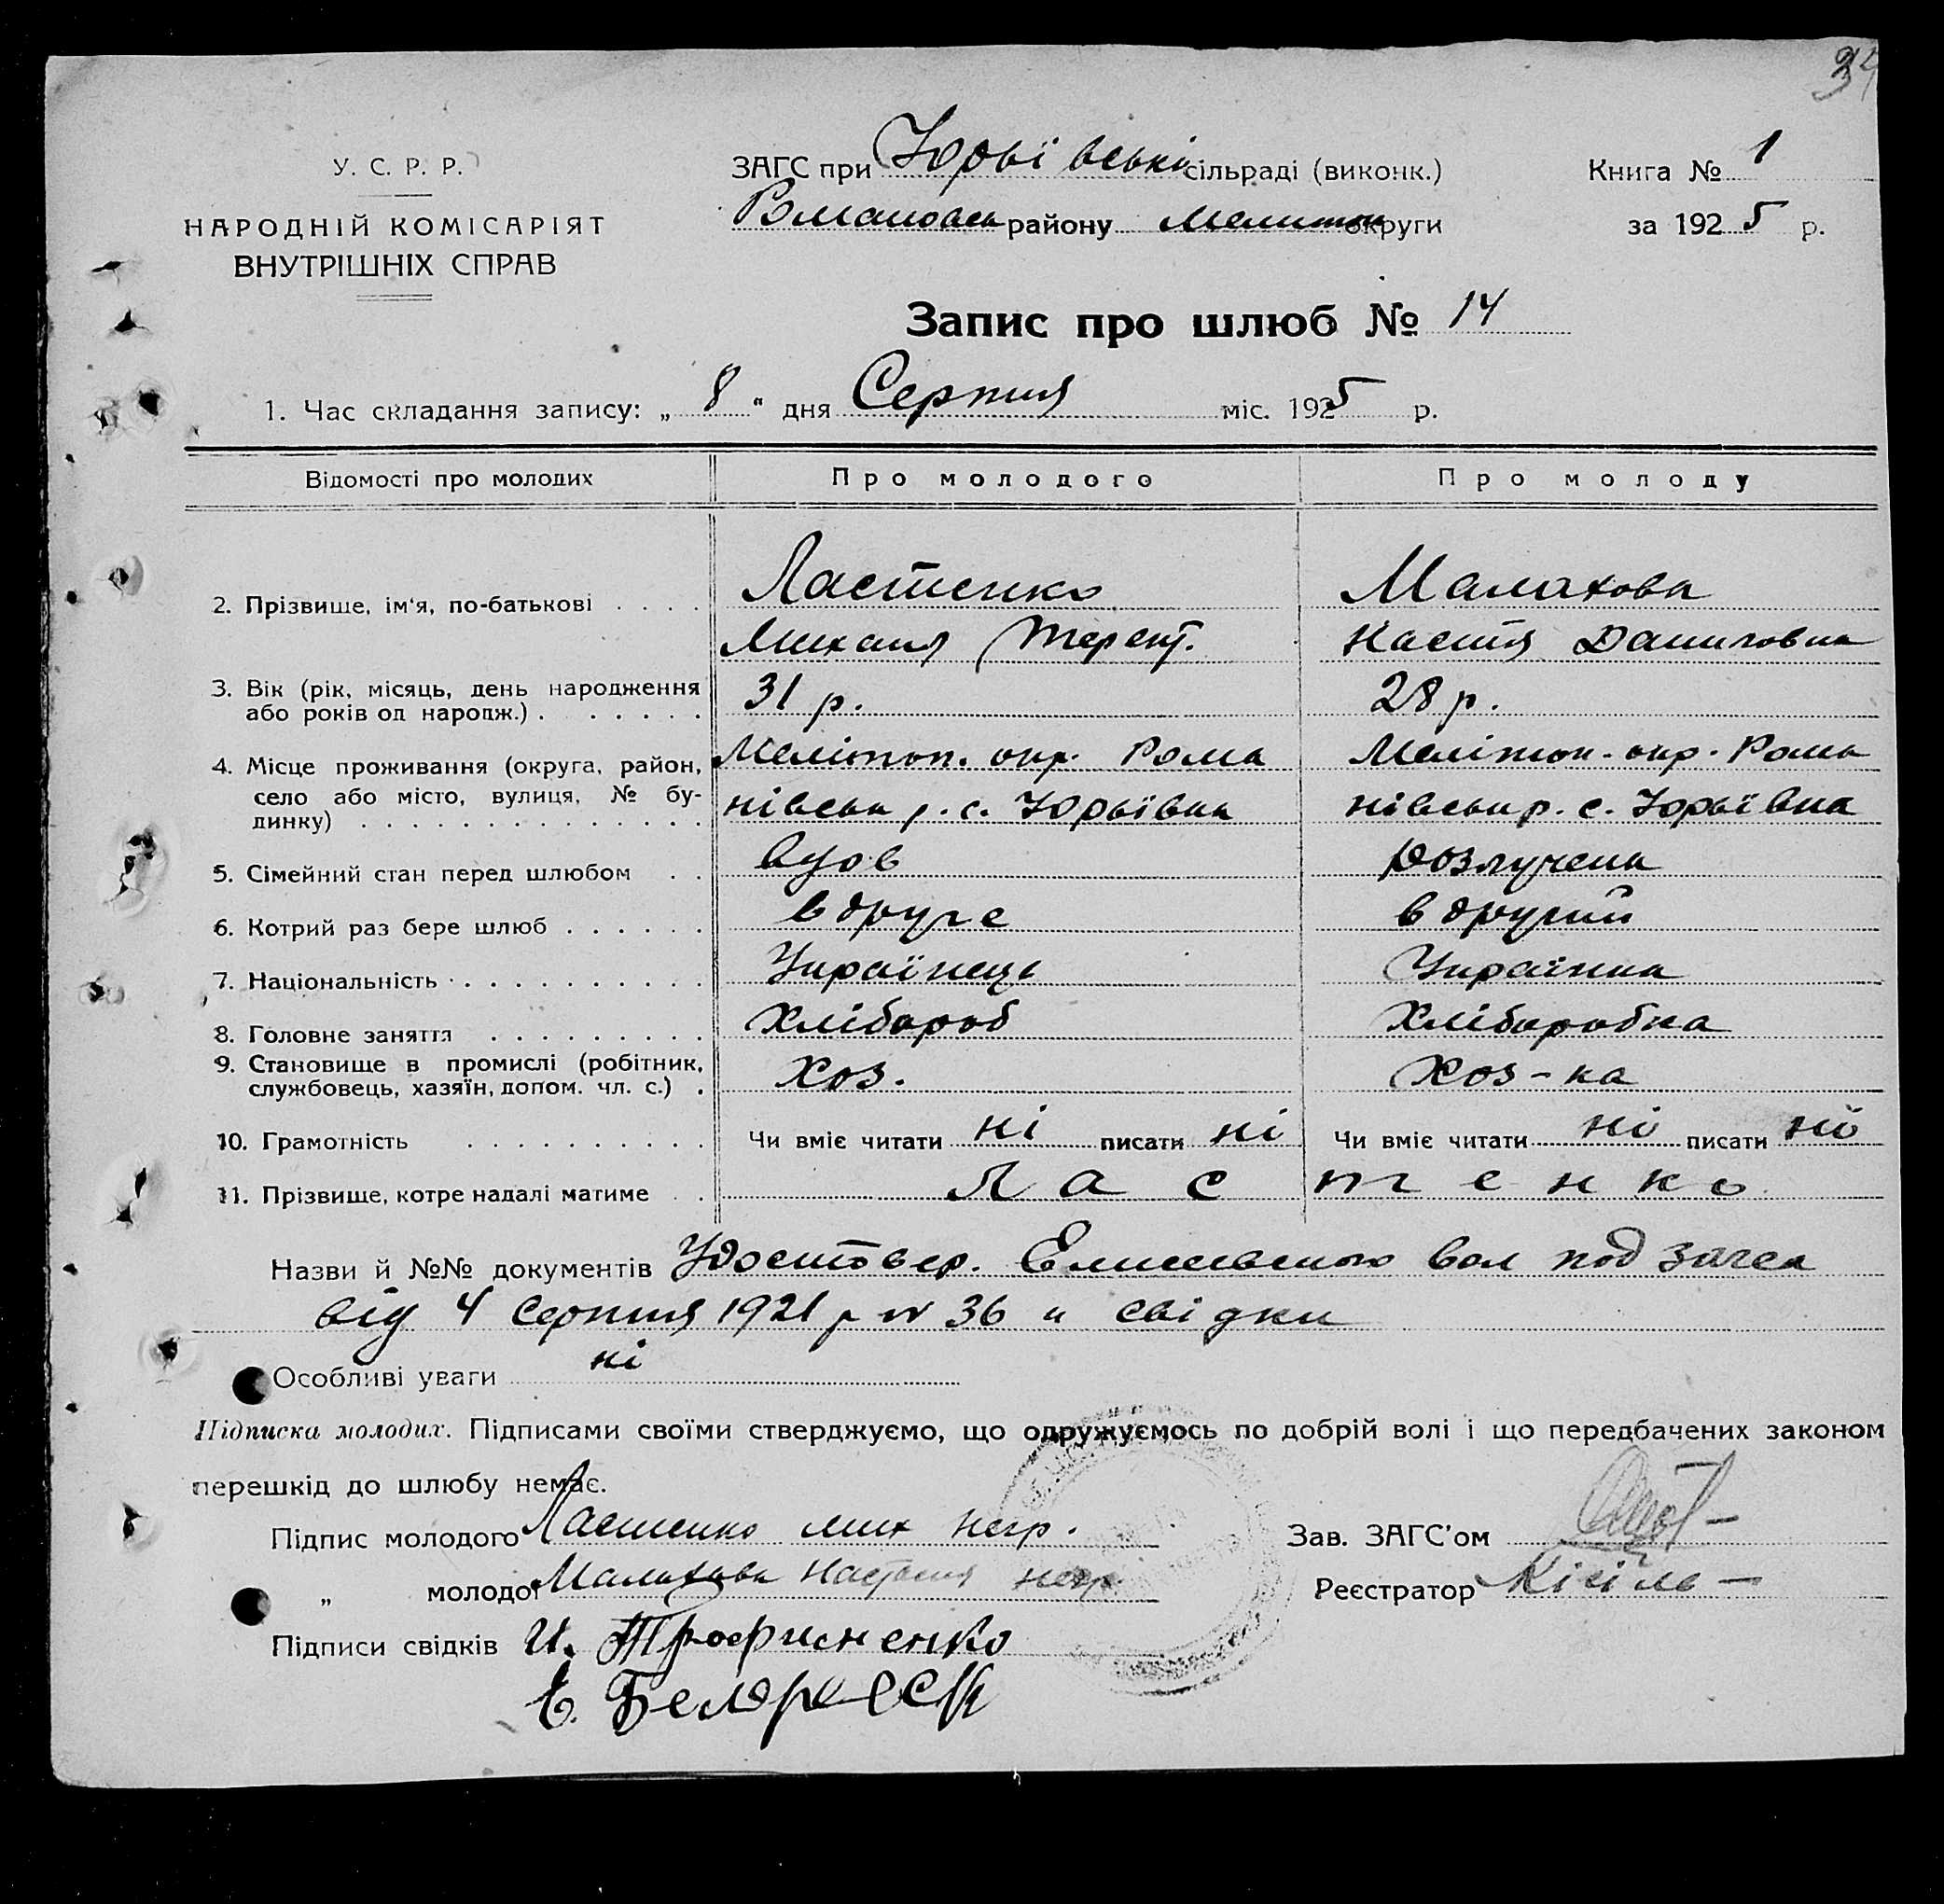 34
У. С. Р. Р.
НАРОДНІЙ КОМІСАРІЯТ
ВНУТРІШНІХ СПРАВ
ЗАГС при Юрьївські сільраді (виконк.)
Романовськ району Мелитоп округи
Книга № 1
за 1925 р.
Запис про шлюб № 14
1. Час складання запису: „ 8 “ дня Серпня міс. 1925 р.
Відомості про молодих Про молодого Про молоду
2. Прізвище, ім'я, по-батькові . . . . Ластенко Малахова
Михаил Терент. Настя Даниловна
3. Вік (рік, місяць, день народження або років од народж.) . . . . . . 31 р. 28 р.
4. Місце проживання (округа, район, Мелітоп. окр. Рома Мелітоп. окр. Рома
село або місто, вулиця, № бу- нівськ р. с. Юрьївка нівськ р. с. Юрьївка
динку) . . . . . . . . . . . . . .
5. Сімейний стан перед шлюбом . . вдов розлучена
6. Котрий раз бере шлюб . . . . . . вдруге в другий
7. Національність . . . . . . . . . . Українець Українка
8. Головне заняття . . . . . . . . . Хлібороб Хліборобка
9. Становище в промислі (робітник,
службовець, хазяїн, допом. чл. с.) . Хоз. Хоз-ка
10. Грамотність . . . . . . . . . . Чи вміє читати ні писати ні Чи вміє читати ні писати ні
11. Прізвище, котре надалі матиме . . Ластенко
Назви й №№ документів Удостовер. вол под загса
від 4 Серпня 1921 р № 36 и свідки
Особливі уваги ні
Підписка молодих. Підписами своїми стверджуємо, що одружуємось по добрій волі і що передбачених законом
перешкід до шлюбу немає.
Підпис молодого Ластенко мих негр.
„ молодої Малахова Настасия негр.
Зав. ЗАГС'ом
Реєстратор Кісіль
Підписи свідків И. Трофименко
Е.